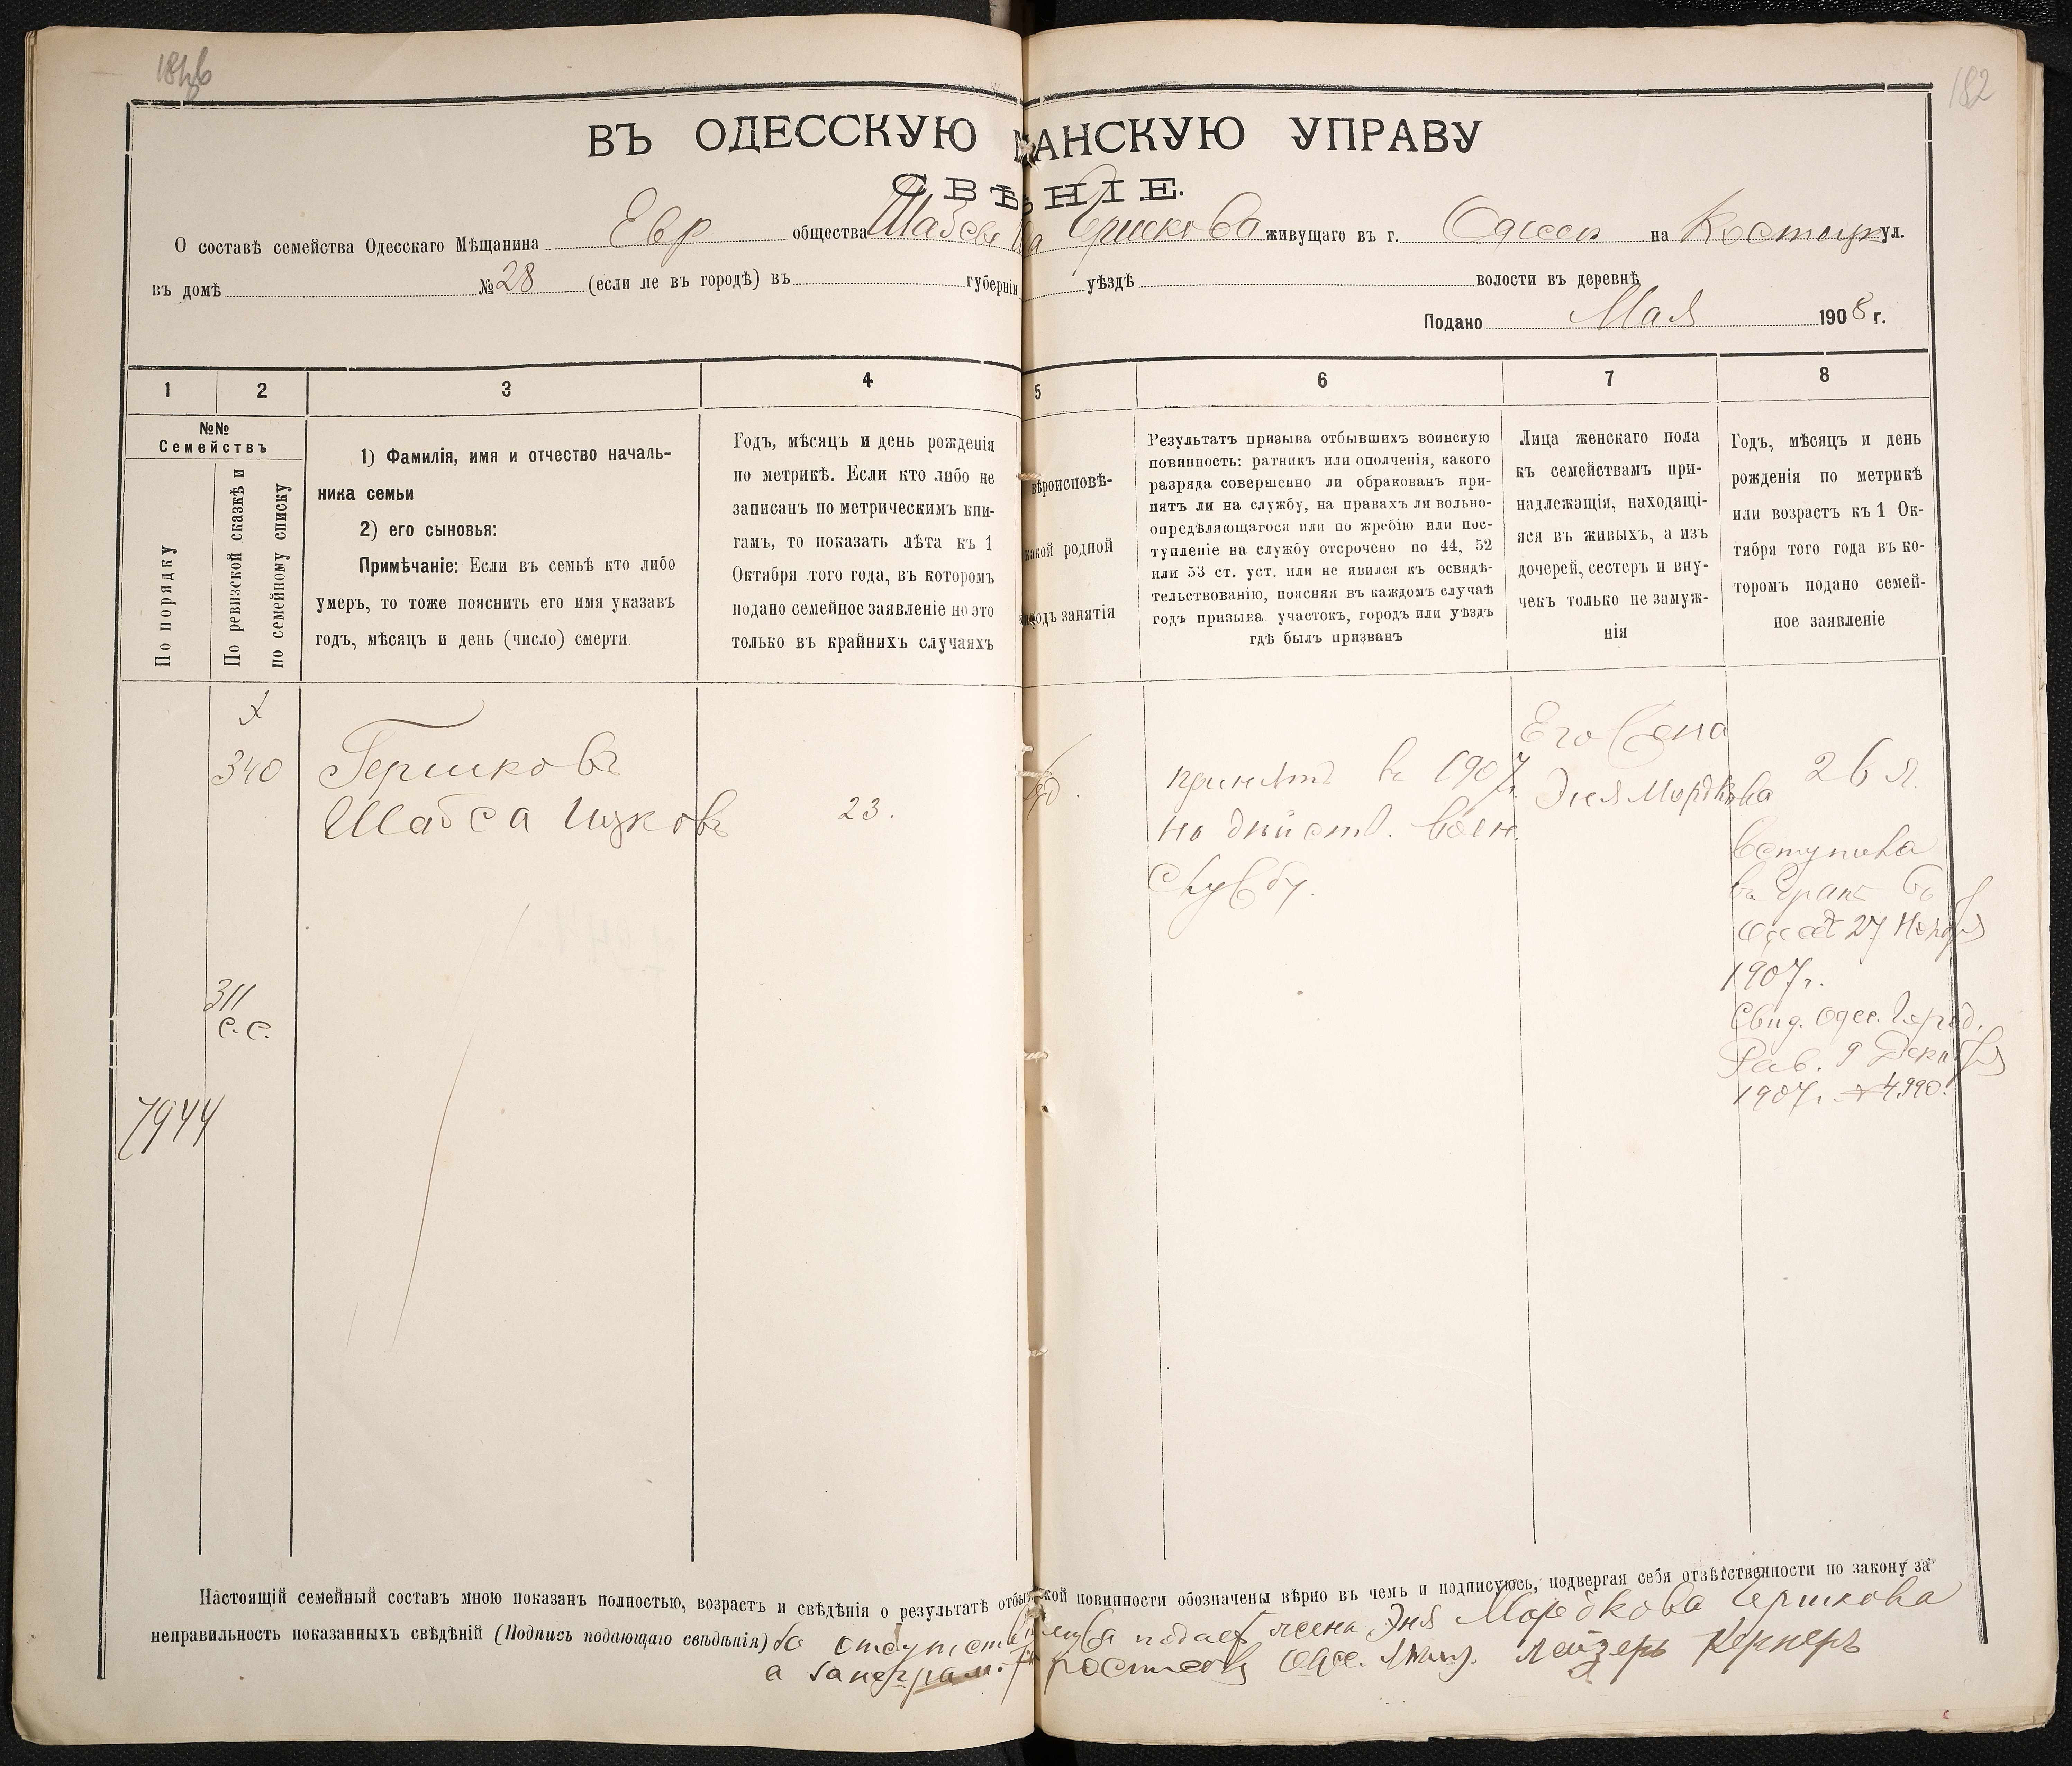 182
ВЪ ОДЕССКУЮ АНСКУЮ УПРАВУ
СВѢ НІЕ.
О составѣ семейства Одесскаго Мѣщанина Евр общества Гершкова живущаго въ г. Одессы на ул.
въ домѣ № 28 (если не въ городѣ) въ губерніи уѣздѣ волости въ деревнѣ
Подано Мая 1908 г.
1 2 3 4 5 6 7 8
№№
Семействъ
По порядку
По ревизской сказкѣ и
по семейному списку
1) Фамилія, имя и отчество началь-
ника семьи
2) его сыновья:
Примѣчаніе: Если въ семьѣ кто либо
умеръ, то тоже пояснить его имя указавъ
годъ, мѣсяцъ и день (число) смерти
Годъ, мѣсяцъ и день рожденія
по метрикѣ. Если кто либо не
записанъ по метрическимъ кни-
гамъ, то показать лѣта къ 1
Октября того года, въ которомъ
подано семейное заявленіе но это
только въ крайнихъ случаяхъ
вѣроисповѣ-
какой родной
родъ занятія
Результатъ призыва отбывшихъ воинскую
повинность: ратникъ или ополченія, какого
разряда совершенно ли обракованъ при-
нятъ ли на службу, на правахъ ли вольно-
опредѣляющагося или по жребію или пос-
тупленіе на службу отсрочено по 44, 52
или 53 ст. уст. или не явился къ освидѣ-
тельствованію, поясняя въ каждомъ случаѣ
годъ призыва участокъ, городъ или уѣздъ
гдѣ былъ призванъ
Лица женскаго пола
къ семействамъ при-
надлежащія, находящі-
яся въ живыхъ, а изъ
дочерей, сестеръ и вну-
чекъ только незамуж-
нія
Годъ, мѣсяцъ и день
рожденія по метрикѣ
или возрастъ къ 1 Ок-
тября того года въ ко-
торомъ подано семей-
ное заявленіе
340
Гершковъ
Шабса Ицковъ
23.
принятъ въ 1907 г.
на дѣйств. воен.
службу.
Его жена
Эня Мордкова
26 л.
вступила
въ бракъ въ
Одессѣ 27 Ноября
1907 г.
Свид. Одес. Город.
Рав. 9 Декабря
1907 г. № 4990.
311
с.с.
7944
Настоящій семейный составъ мною показанъ полностью, возрастъ и свѣдѣнія о результатѣ отбы кой повинности обозначены вѣрно въ чемъ и подписуюсь, подвергая себя отвѣтственности по закону за
неправильность показанныхъ свѣдѣній (Подпись подающаго свѣдѣнія) за отсутств мужа подаетъ жена Эня Мордкова Гершкова
а за неграм. Одес. Мѣщ. Лейзеръ Кернеръ